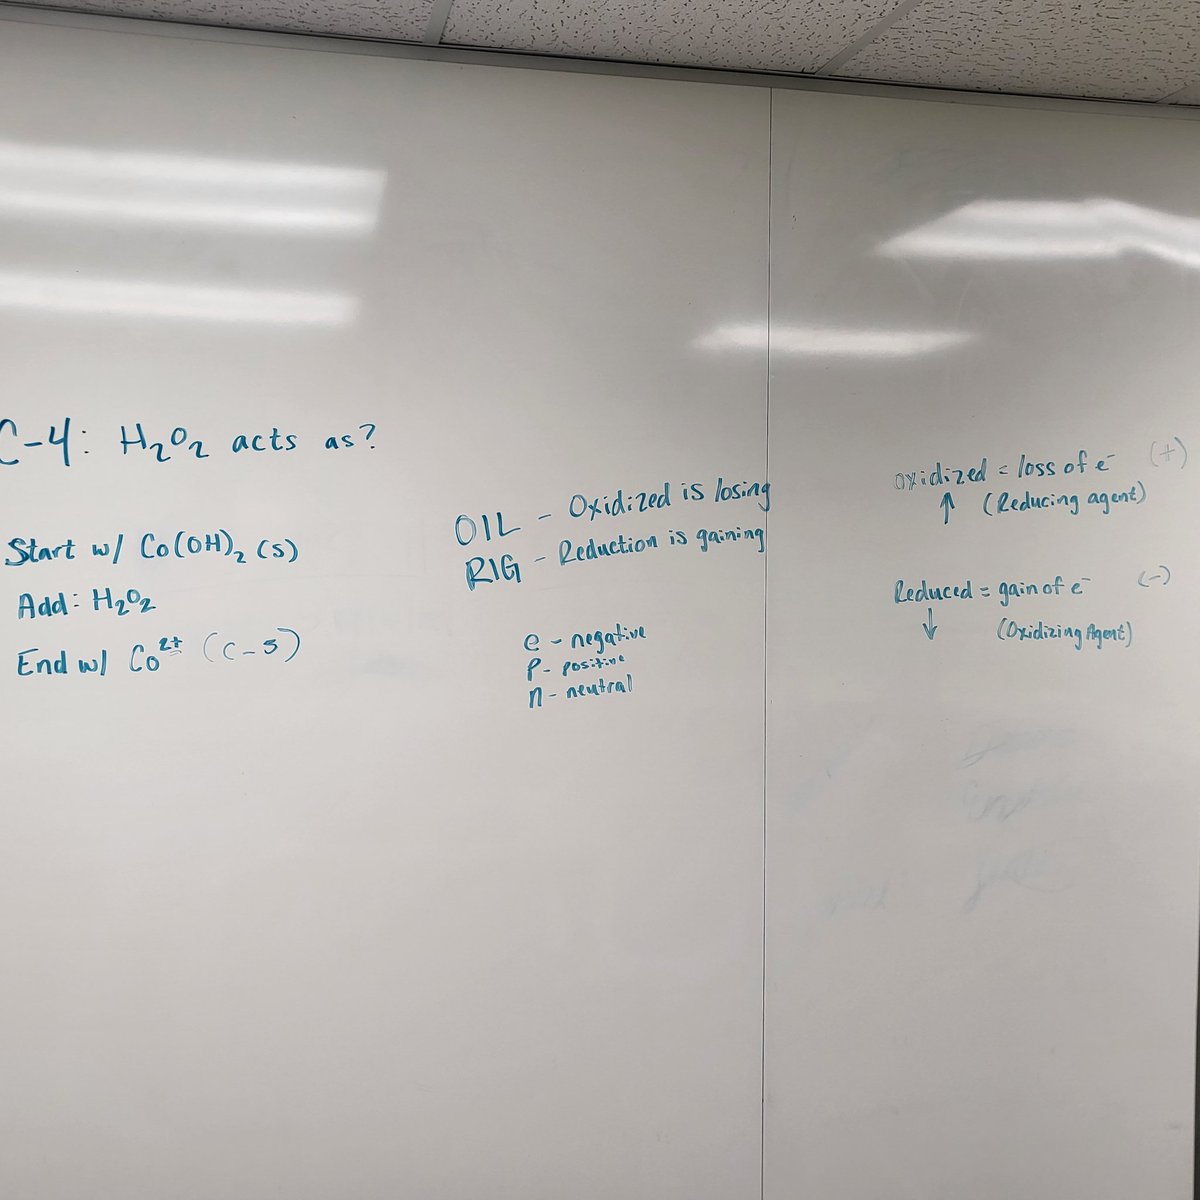 C-4: H₂O₂ acts as?
Start w/ Co(OH)₂ (s)
Add: H₂O₂
End w/ Co²⁺ (C-5)
OIL - Oxidized is losing
RIG - Reduction is gaining
e - negative
p - positive
n - neutral
oxidized = loss of e⁻ (+)
↑ (Reducing agent)
Reduced = gain of e⁻ (-)
↓ (Oxidizing Agent)